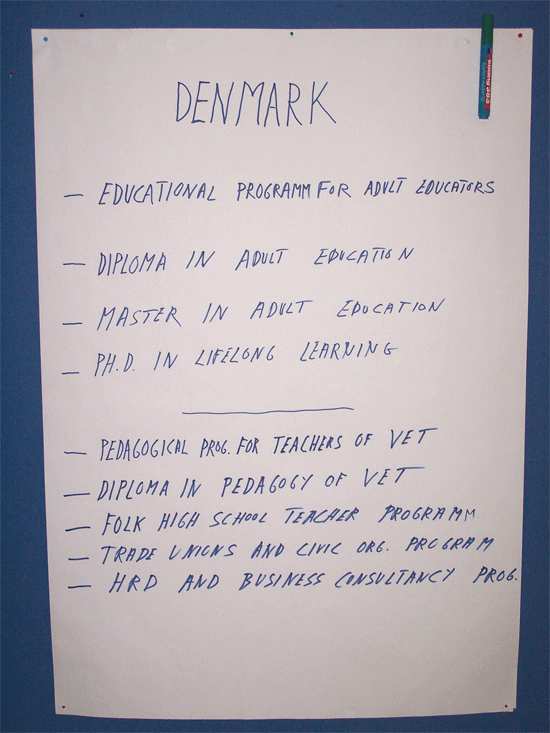 DENMARK
— EDUCATIONAL PROGRAMM FOR ADULT EDUCATORS
— DIPLOMA IN ADULT EDUCATION
— MASTER IN ADULT EDUCATION
— PH.D. IN LIFELONG LEARNING
— PEDAGOGICAL PROG. FOR TEACHERS OF VET
— DIPLOMA IN PEDAGOGY OF VET
— FOLK HIGH SCHOOL TEACHER PROGRAMM
— TRADE UNIONS AND CIVIC ORG. PROGRAM
— HRD AND BUSINESS CONSULTANCY PROG.